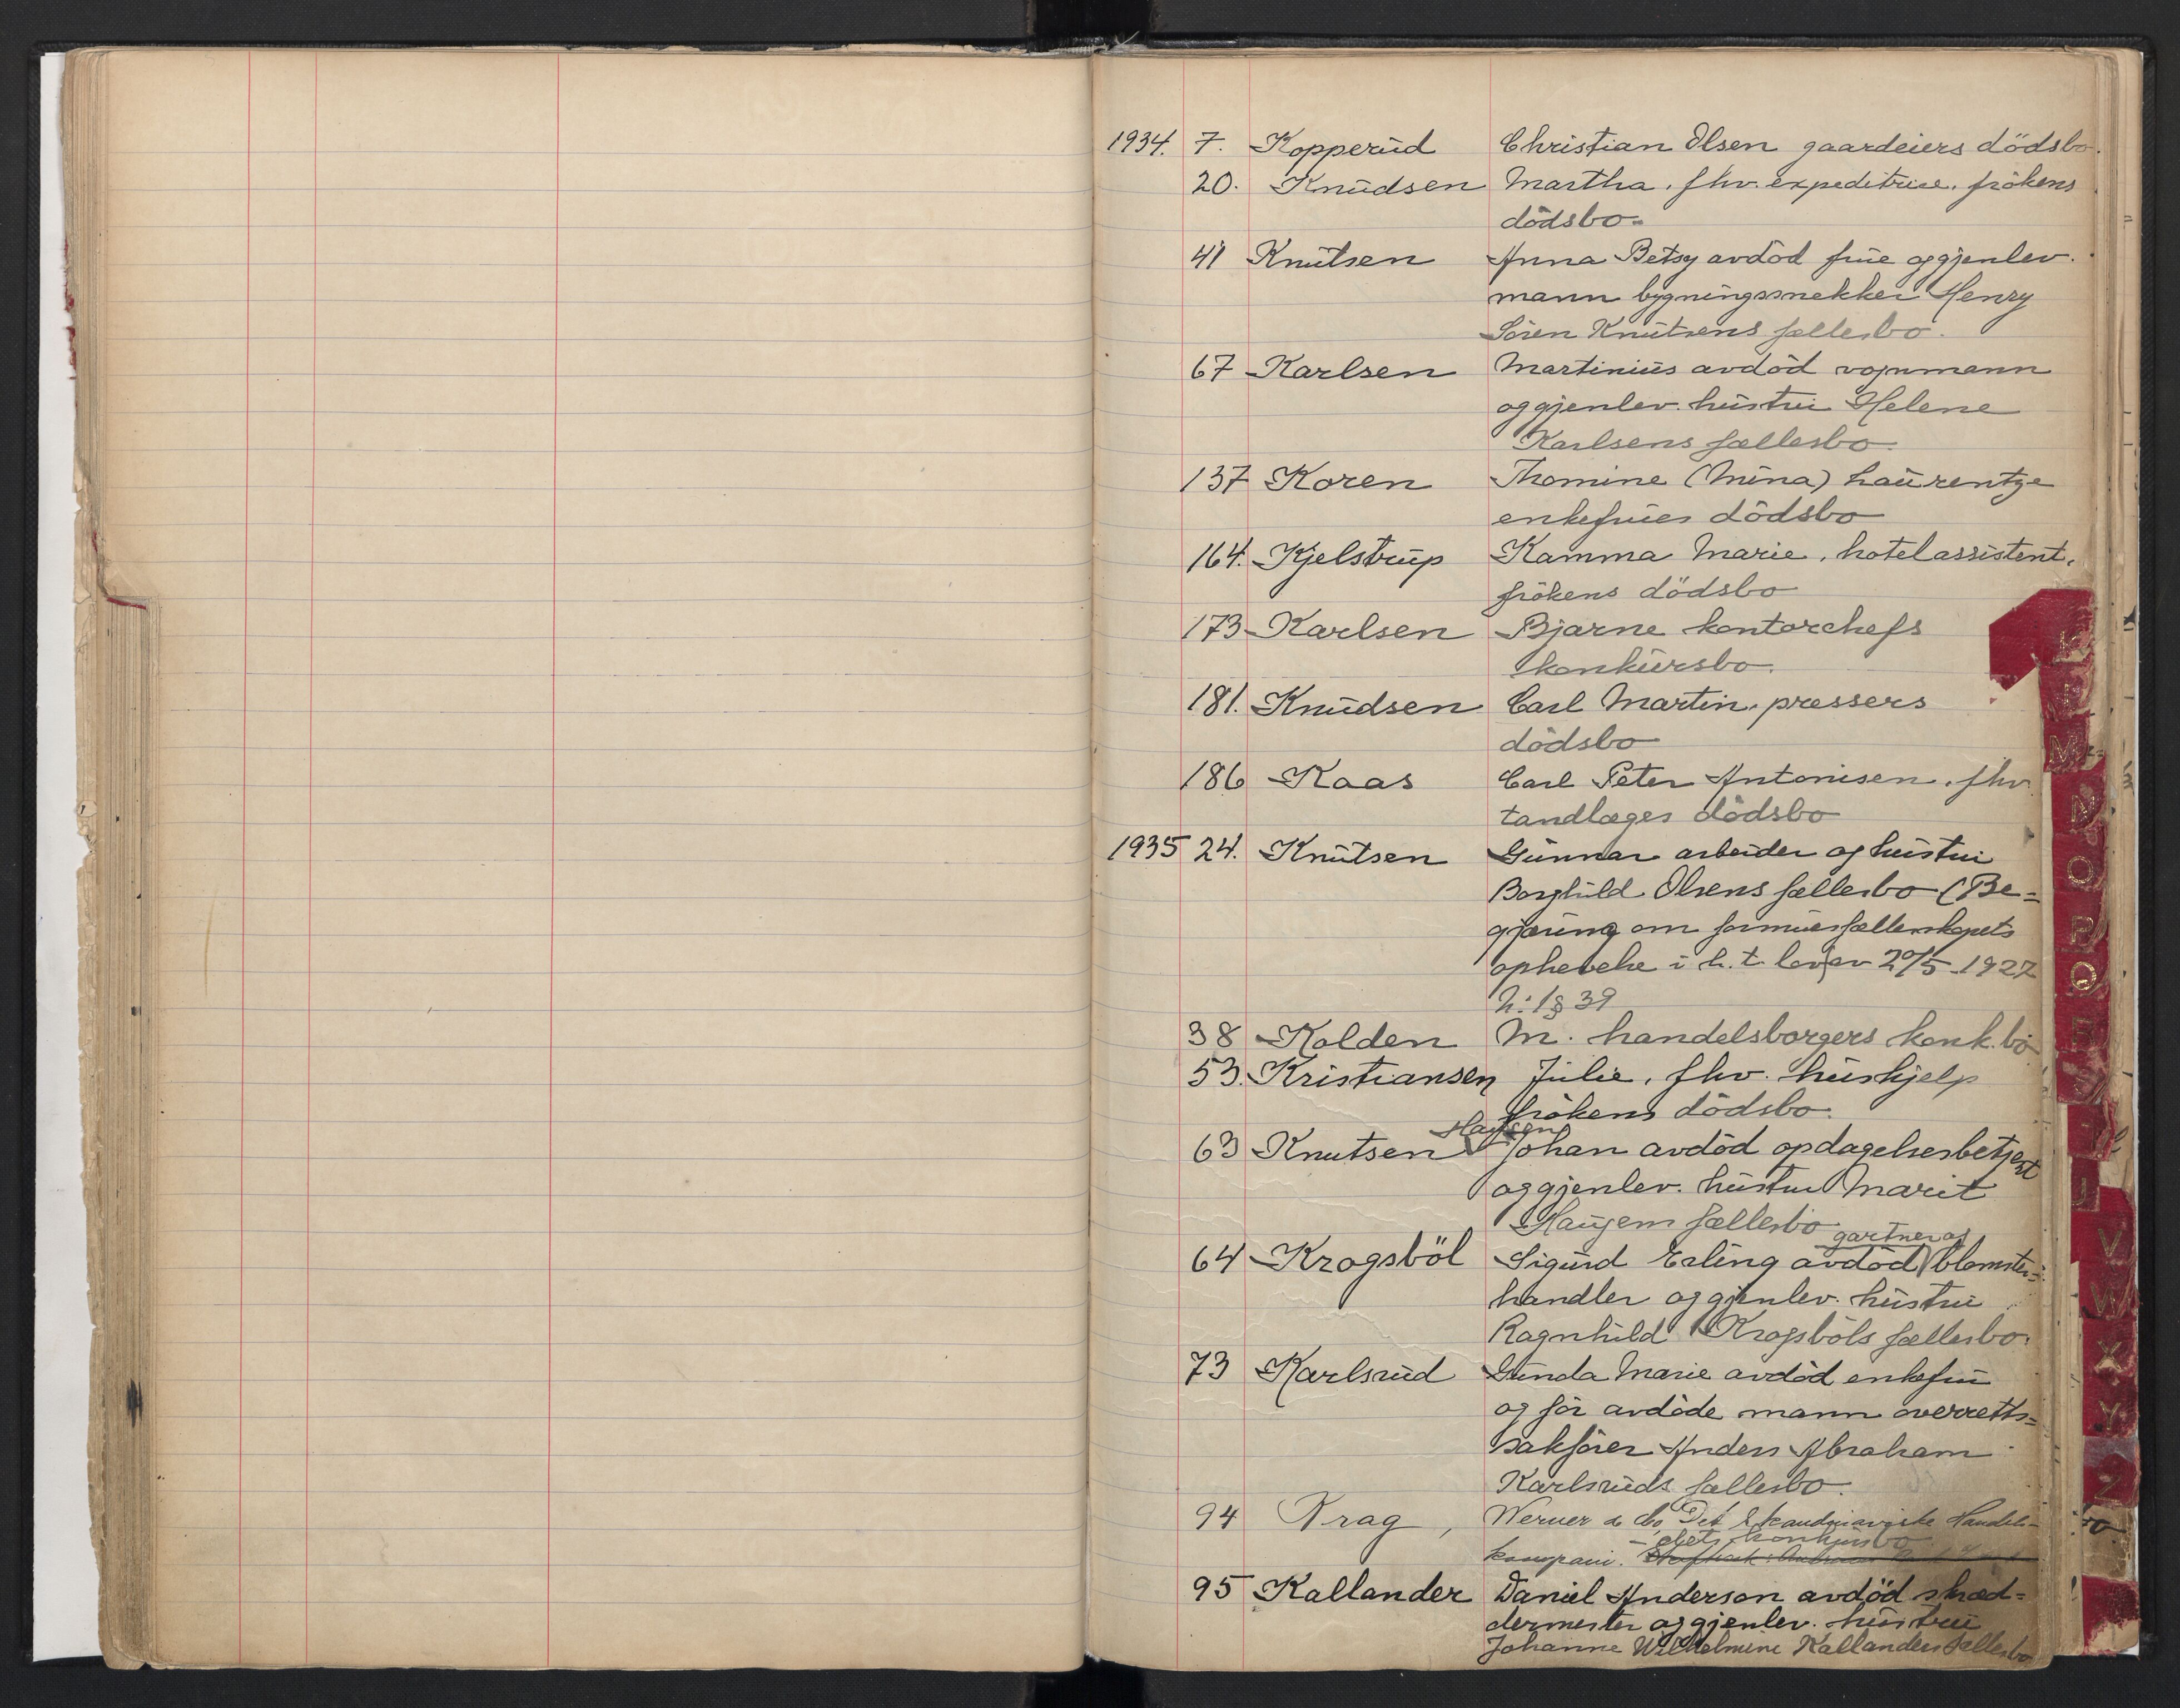 1934. 7. Kopperud Christian Olsen gaardeiers dödsbo.
20. Knudsen Martha, fhv. expeditrice, frökens
dödsbo.
41 Knutsen Anna Betsy avdöd frue og gjenlev.
mann bygningssnekker Henry
Sören Knutsens fællesbo.
67 Karlsen Martinius avdöd vognmann
og gjenlev. hustru Helene
Karlsens fællesbo.
137 Koren Thomine (Mina) Laurentze
enkefrues dödsbo
164. Kjelstrup Kamma Marie, hotelassistent,
frökens dödsbo
173 Karlsen Bjarne kontorchefs
konkursbo.
181. Knudsen Carl Martin, pressers
dödsbo
186 Kaas Carl Peter Antonisen, fhv.
tandlæges dödsbo
1935 24. Knutsen Gunnar arbeider og hustru
Borghild Olsens fællesbo (Be=
gjæring om formuesfællesskapets
ophevelse i h. t. lov av 20/5 1927
n: 1 § 39
38 Kolden M. handelsborgers konk.bo
53. Kristiansen Julie, fhv. hushjelp
frökens dödsbo.
63 Knutsen Haugen Johan avdöd opdagelsesbetjent
og gjenlev. hustru Marit
Haugens fællesbo
64 Krogsböl Sigurd Erling avdöd gartner og blomster=
handler og gjenlev. hustru
Ragnhild Krogsböls fællesbo.
73 Karlsrud Gunda Marie avdöd enkefru
og för avdöde mann overretts=
sakförer Anders Abraham
Karlsruds fællesbo.
94 Krag, Werner & Co, Det Skandinaviske Handels-
kompani. -ets konkursbo
95 Kallander Daniel Anderson avdöd skræd=
dermester og gjenlev. hustru
Johanne Wilhelmine Kallanders fællesbo
K
L
M
N
O
P
Q
R
S
T
U
V
W
X
Y
Z